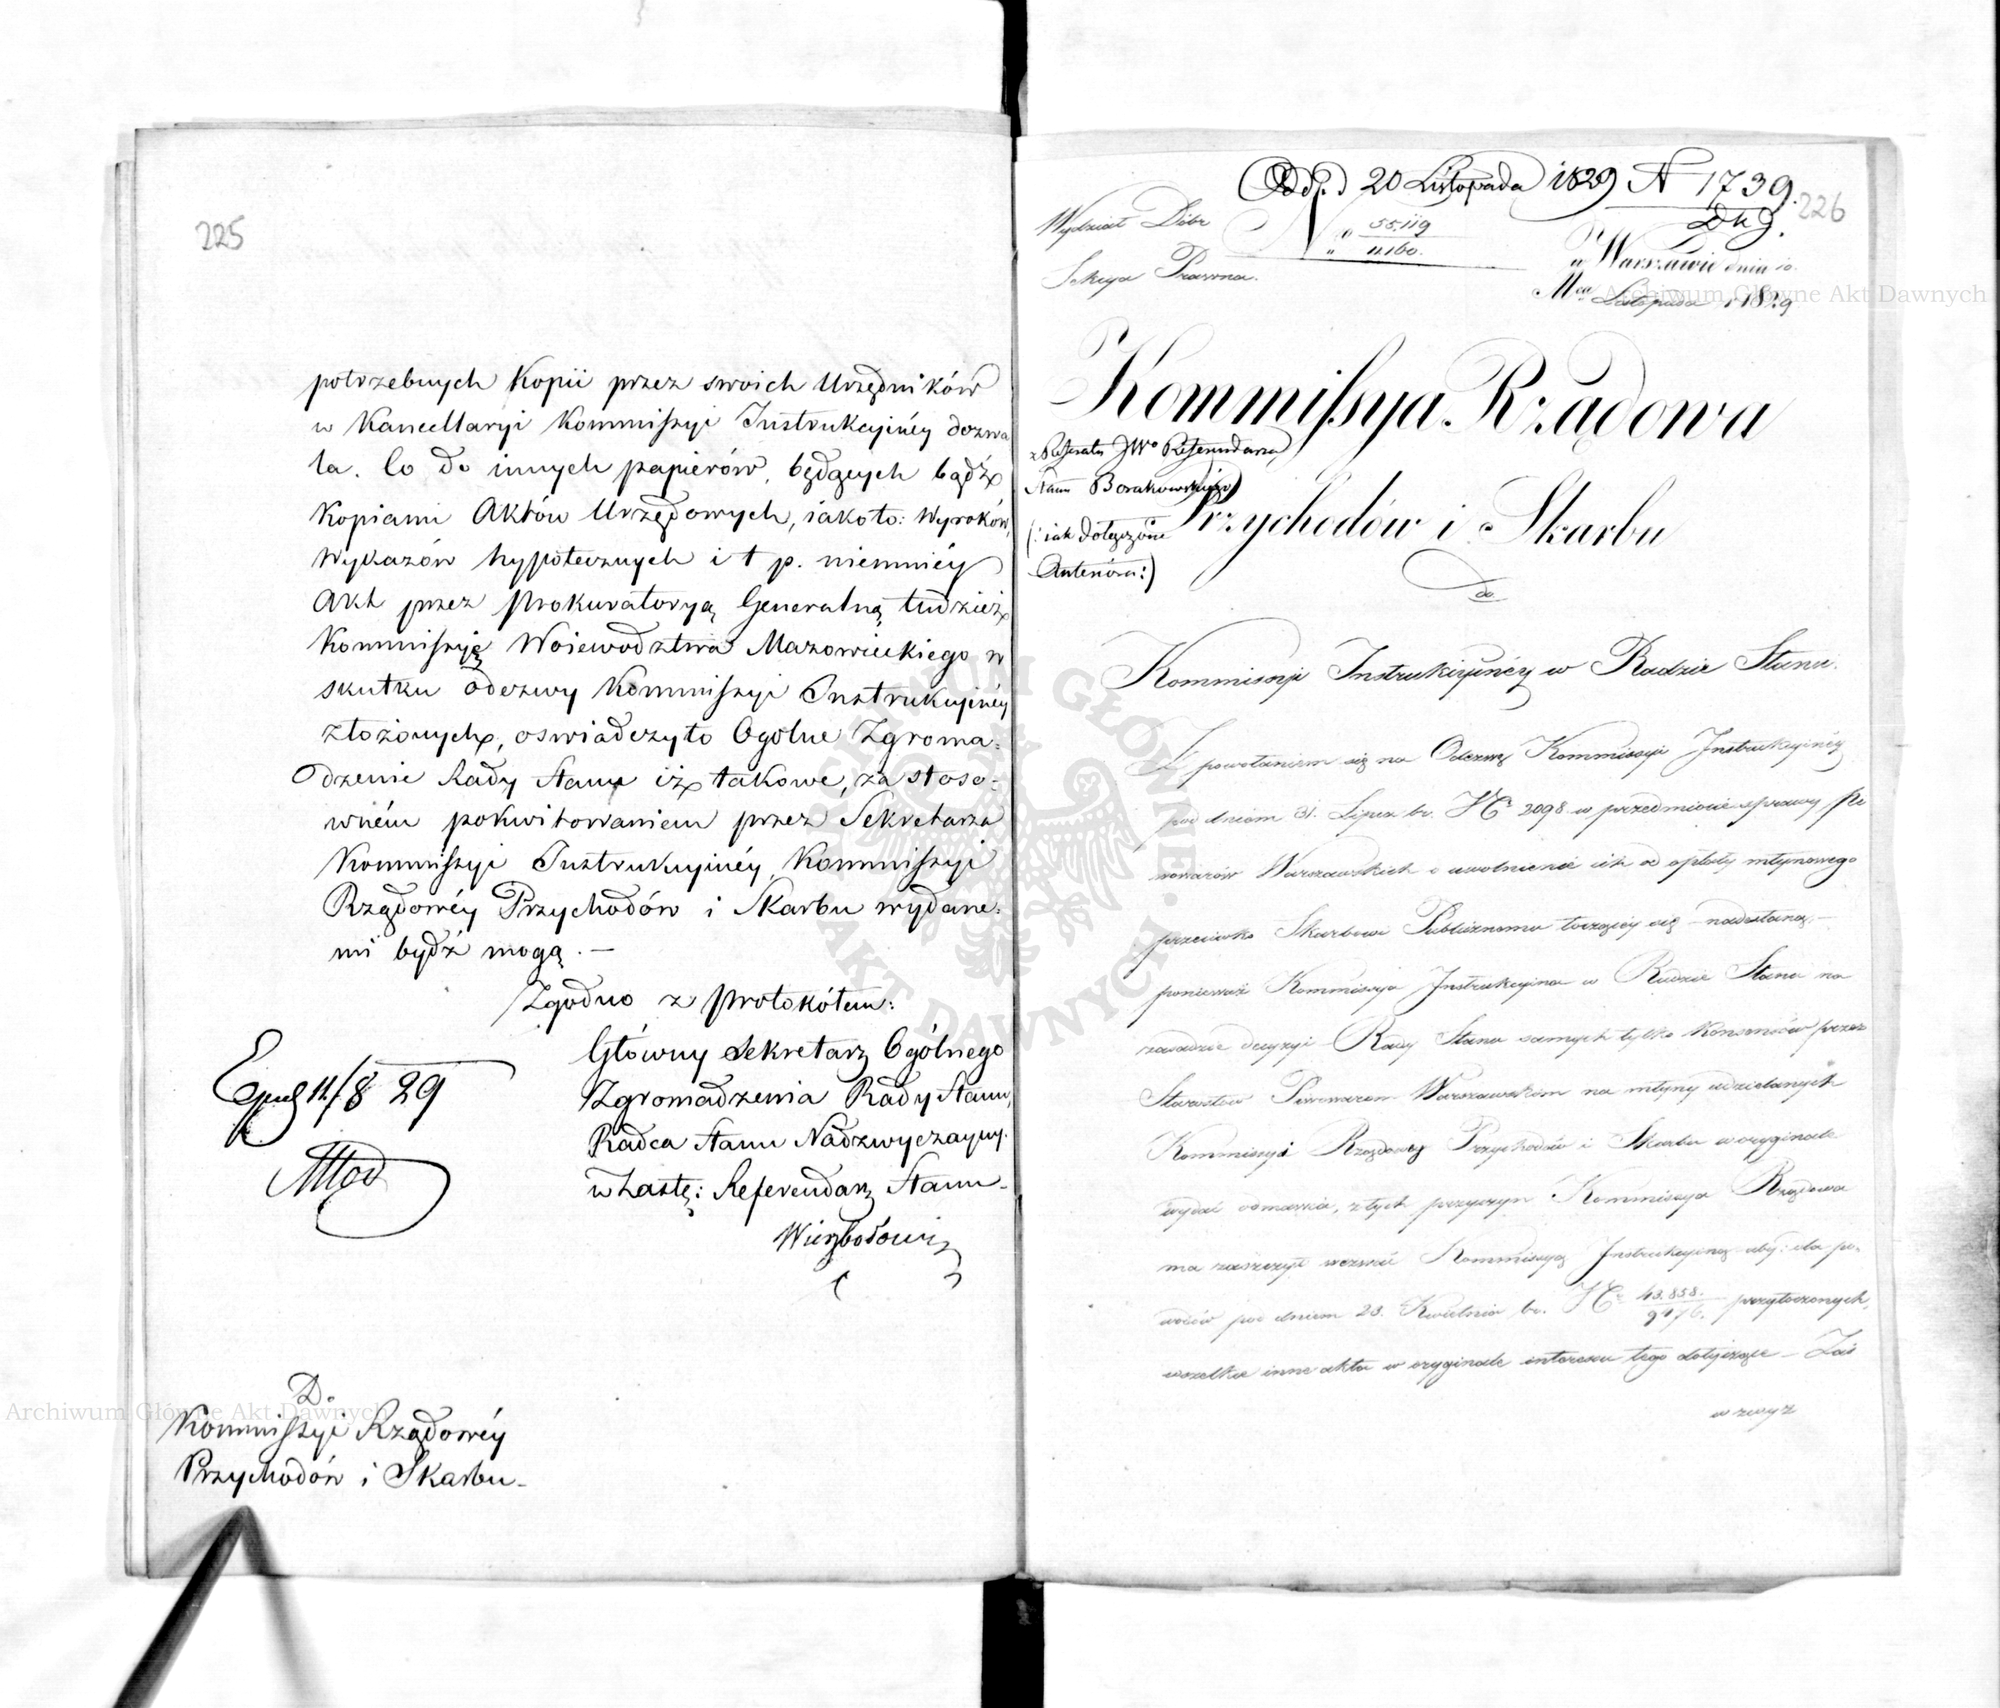 225
potrzebnych Kopii przez swoich Urzędników
w Kancellaryi Kommissyi Instrukcyinéy dozwa
la. Co do innych papierów, będących bądź
Kopiami Aktów Urzędowych, iakoto: Wyroków,
Wykazów hypotecznych i t p. niemniéy
Akt przez Prokuratoryą Generalną, tudzież
Kommissyię Woiewodztwa Mazowieckiego w
skutku odezwy Kommissyi Instrukcyinéy
złożonych, oswiadczyło Ogólne Zgroma:
dzenie Rady Stanu iż takowe, za stoso:
wném pokwitowaniem przez Sekretarza
Kommissyi Instrukcyinéy, Kommissyi
Rządowéy Przychodów i Skarbu wydane:
mi bydź mogą. —
Zgodno z Protokółem:
Główny Sekretarz Ogólnego
Zgromadzenia Rady Stanu,
Radca Stanu Nadzwyczayny.
w Zastę: Referendarz Stanu
11/8 29
Do
Kommissyi Rządowéy
Przychodów i Skarbu
226
Odd. d 20 Listopada 1829 N 1739.
Wydział Dóbr
Sekcya Prawna.
No 55.119
11160.
w Warszawie dnia 10.
Mca Listopada 1829
Kommissya Rządowa
z Referatu JWo Referendarza
Stanu Borakowskiego
Przychodów i Skarbu
(: iak dołączone
Anteriora:)
do
Kommissyi Instrukcyinéy w Radzie Stanu.
Z powołaniem się na Odezwę Kommissyi Instrukcyinéy
pod dniem 31. Lipca br. No 2098 w przedmiocie sprawy Pi
wowarów Warszawskich o uwolnienie ich od opłaty młynowego
przeciwko Skarbowi Publicznemu toczącéy się — nadesłaną, —
ponieważ Kommissya Instrukcyina w Radzie Stanu na
zasadzie decyzyi Rady Stanu samych tylko Konsensów przez
Starostów Piwowarom Warszawskim na młyny udzielanych
Kommissyi Rządowéy Przychodów i Skarbu w oryginale
wydać odmawia, z tych przyczyn Kommissya Rządowa
ma zaszczyt wezwać Kommissyą Instrukcyiną aby: dla po-
wodów pod dniem 23. Kwietnia br. No 43.858./9476. przytoczonych,
wszelkie inne akta w oryginale interessu tego dotyczące — Zaś
w zwyz
Archiwum Główne Akt Dawnych
Archiwum Główne Akt Dawnych
ARCHIWUM GŁÓWNE AKT DAWNYCH